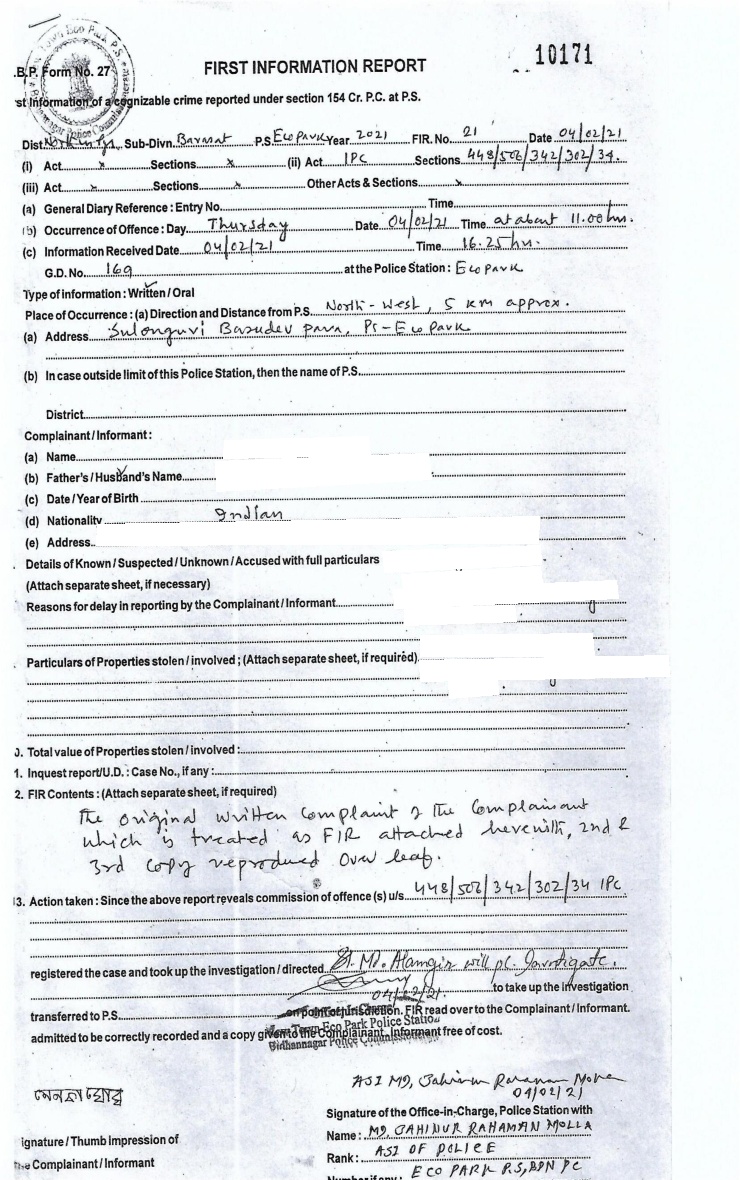 10171
.B.P. Form No. 27
FIRST INFORMATION REPORT
st Information of a cognizable crime reported under section 154 Cr. P.C. at P.S.
Dist. Sub-Divn. Barasat P.S. Eco Park Year 2021 FIR. No. 21 Date 04/02/21
(i) Act x Sections x (ii) Act IPC Sections 448/506/342/302/34.
(iii) Act x Sections x Other Acts & Sections x
(a) General Diary Reference : Entry No. Time
(b) Occurrence of Offence : Day Thursday Date 04/02/21 Time at about 11.00 hrs.
(c) Information Received Date 04/02/21 Time 16.25 hrs.
G.D. No. 169 at the Police Station : Eco Park
Type of information : Written / Oral
Place of Occurrence : (a) Direction and Distance from P.S. North-West, 5 km approx.
(a) Address Sulonguri Basudev para, PS-Eco Park
(b) In case outside limit of this Police Station, then the name of P.S.
District
Complainant / Informant :
(a) Name
(b) Father's / Husband's Name
(c) Date / Year of Birth
(d) Nationality Indian
(e) Address
Details of Known / Suspected / Unknown / Accused with full particulars
(Attach separate sheet, if necessary)
Reasons for delay in reporting by the Complainant / Informant
Particulars of Properties stolen / involved ; (Attach separate sheet, if required)
0. Total value of Properties stolen / involved :
1. Inquest report/U.D. : Case No., if any :
2. FIR Contents : (Attach separate sheet, if required)
The original written complaint of the complainant
which is treated as FIR attached herewith, 2nd &
3rd copy reproduced over leaf.
3. Action taken : Since the above report reveals commission of offence (s) u/s 448/506/342/302/34 IPC
registered the case and took up the investigation / directed SI. Md. Alamgir will pl. Investigate.
04/02/21. to take up the Investigation
transferred to P.S. on point of jurisdiction. FIR read over to the Complainant / Informant.
Town Eco Park Police Station
admitted to be correctly recorded and a copy given to the Complainant. Informant free of cost.
Bidhannagar Police Commissionerate
ASI MD, Jahinur Rahaman Molla
04/02/21
Signature of the Office-in-Charge, Police Station with
ignature / Thumb Impression of
Name : MD, JAHINUR RAHAMAN MOLLA
the Complainant / Informant
Rank : ASI OF POLICE
Number if any : ECO PARK P.S, BDN PC